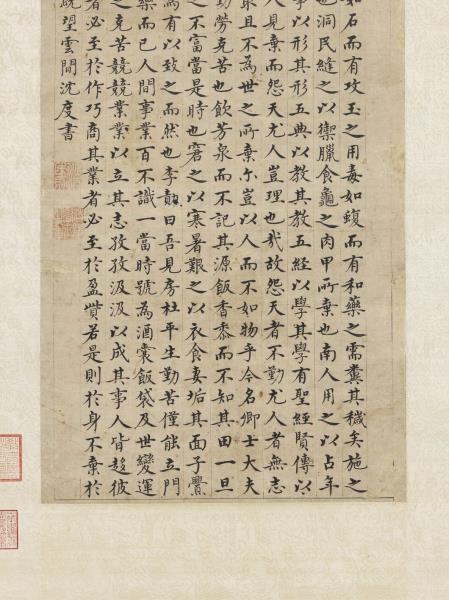 石而有攻玉之用毒如蝮而有和藥之需糞其穢矣施之
也洞民縫之以禦臘食龜之肉甲所棄也南人用之以占年
以形其形五典以教其教五經以學其學有聖經賢傳以
見棄而怨天尤人豈理也哉故怨天者不勤尤人者無志
且不為世之所棄尔豈以人而不如物乎今名卿士大夫
勞克苦也飲芳泉而不記其源飯香黍而不知其田一旦
之不富當是時也窘之以寒暑艱之以衣食妻垢其面子釁
有以致之而然也李勣曰吾見房杜平生勤苦僅能立門
而已人間事業百不識一當時號為酒囊飯袋及世變運
之克苦競競業業以立其志孜孜汲汲以成其事人皆趍彼
者必至於作巧商其業者必至於盈貲若是則於身不棄於
望雲間沈度書